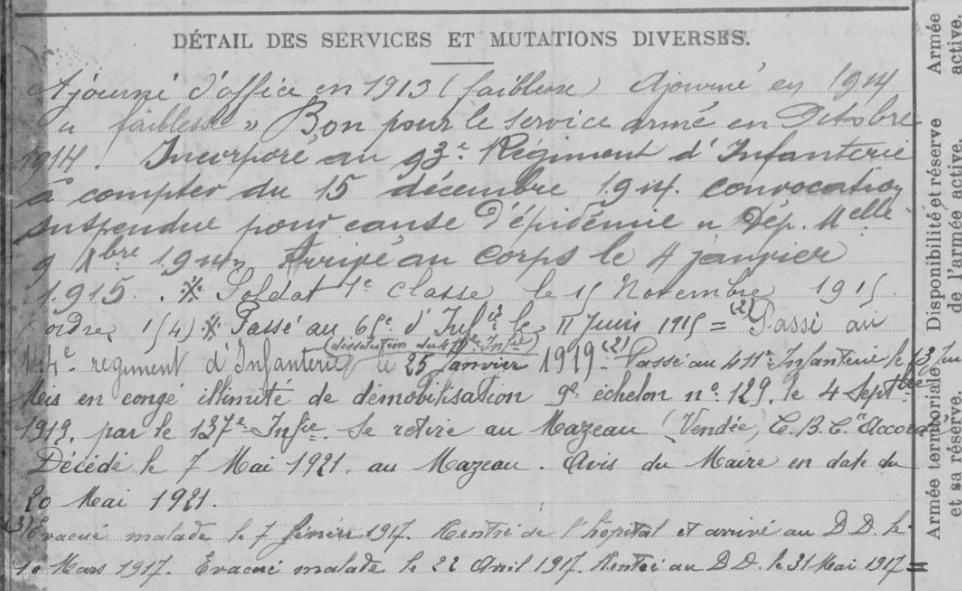 DÉTAIL DES SERVICES ET MUTATIONS DIVERSES.
Ajourné d'office en 1913 (faiblesse) Ajourné en 1914
" faiblesse " Bon pour le service armé en Octobre
1914. Incorporé au 93e Régiment d'Infanterie
à compter du 15 décembre 1914. convocation
suspendue pour cause d'épidémie " Dép. Melle
9 Xbre 1914" Arrivé au corps le 4 janvier
1915. Soldat 1e classe le 15 Novembre 1915
(ordre 154) Passé au 65e d'Infie le 11 Juin 1915 = (2) Passé au
(dissolution du 411e Infie)
144e régiment d'Infanterie le 25 janvier 1919 (2) Passé au 411e Infanterie le 13 Juin
Mis en congé illimité de démobilisation 9e échelon no 129, le 4 Septbre
1919, par le 137e Infie. Se retire au Mazeau (Vendée) C.B.C. Accordé
Décédé le 7 Mai 1921, au Mazeau. Avis du Maire en date du
20 Mai 1921.
(3) Evacué malade le 7 février 1917. Rentré de l'hôpital et arrivé au D.D. le
10 Mars 1917. Evacué malade le 22 Avril 1917. Rentré au D.D. le 31 Mai 1917 =
Armée active.
Disponibilité et réserve de l'armée active.
Armée territoriale et sa réserve.